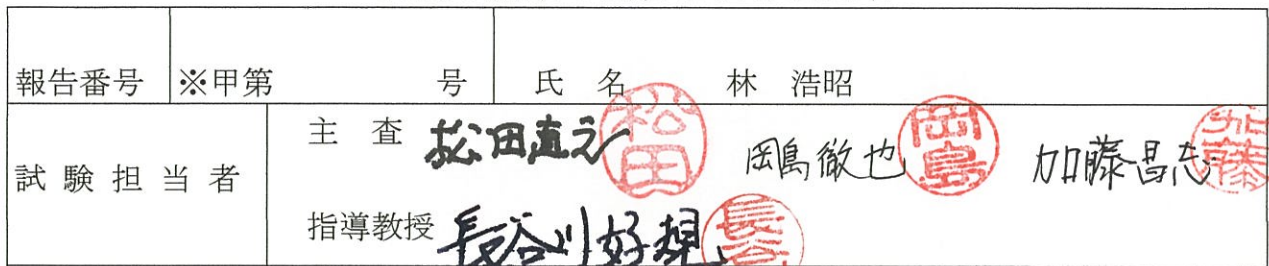 報告番号 ※甲第 号 氏 名 林 浩昭
試験担当者 主 査 松田直之 松田 岡島徹也 岡島 加藤昌志 加藤
指導教授 長谷川好規 長谷